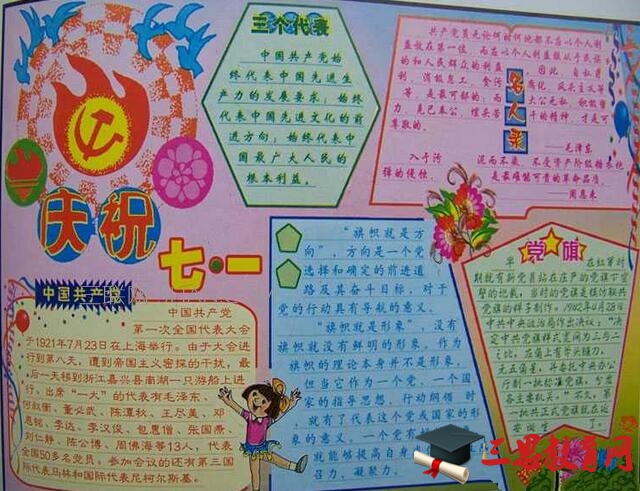 三个代表
中国共产党始
终代表中国先进生
产力的发展要求；始终
代表中国先进文化的前
进方向；始终代表中
国最广大人民的
根本利益。
名人录
共产党员无论何时何地都不应以个人利
益放在第一位，而应以个人利益服从于民族
的和人民群众的利益。因此，自私自
利，消极怠工，贪污腐化，风头主义等
等，是最可鄙的；而大公无私，积极努
力，克己奉公，埋头苦干的精神，才是可
尊敬的。
——毛泽东
入于污泥而不染，不受资产阶级糖衣炮
弹的侵蚀，是最难能可贵的革命品质。
——周恩来
庆祝
七·一
中国共产党
中国共产党
第一次全国代表大会
于1921年7月23日在上海举行。由于大会进
行到第八天，遭到帝国主义密探的干扰，最
后一天移到浙江嘉兴县南湖一只游船上进
行。出席“一大”的代表有毛泽东、
何叔衡、董必武、陈潭秋、王尽美、邓
恩铭、李达、李汉俊、包惠僧、张国焘、
刘仁静、陈公博、周佛海等13人，代表
全国50多名党员。参加会议的还有第三国
际代表马林和国际代表尼柯尔斯基。
“旗帜就是方
向”，方向是一个党
选择和确定的前进道
路及其奋斗目标，对于
党的行动具有导航的意义。
“旗帜就是形象”，没有
旗帜就没有鲜明的形象。作为
旗帜的理论本身并不是形象，
但当它作为一个党、一个国
家的指导思想、行动纲领时
，就有了代表这个党或国家的形
象的意义。一个党有
就能够提高自身
召力、凝聚力。
党旗
早在红军时
期就有新党员站在庄严的党旗下宣
誓的记载，当时的党旗是模仿联共
党旗的样子制作。1942年4月28日
中共中央政治局作出决议：“决
定中共党旗样式宽阔为三与二
之比，左角上有斧头镰刀，
无五角星，并委托中央办公
厅制一批标准党旗，分发
各主要机关。”不久，第
一批共正式党旗就在延
安诞生了。
三思教育网